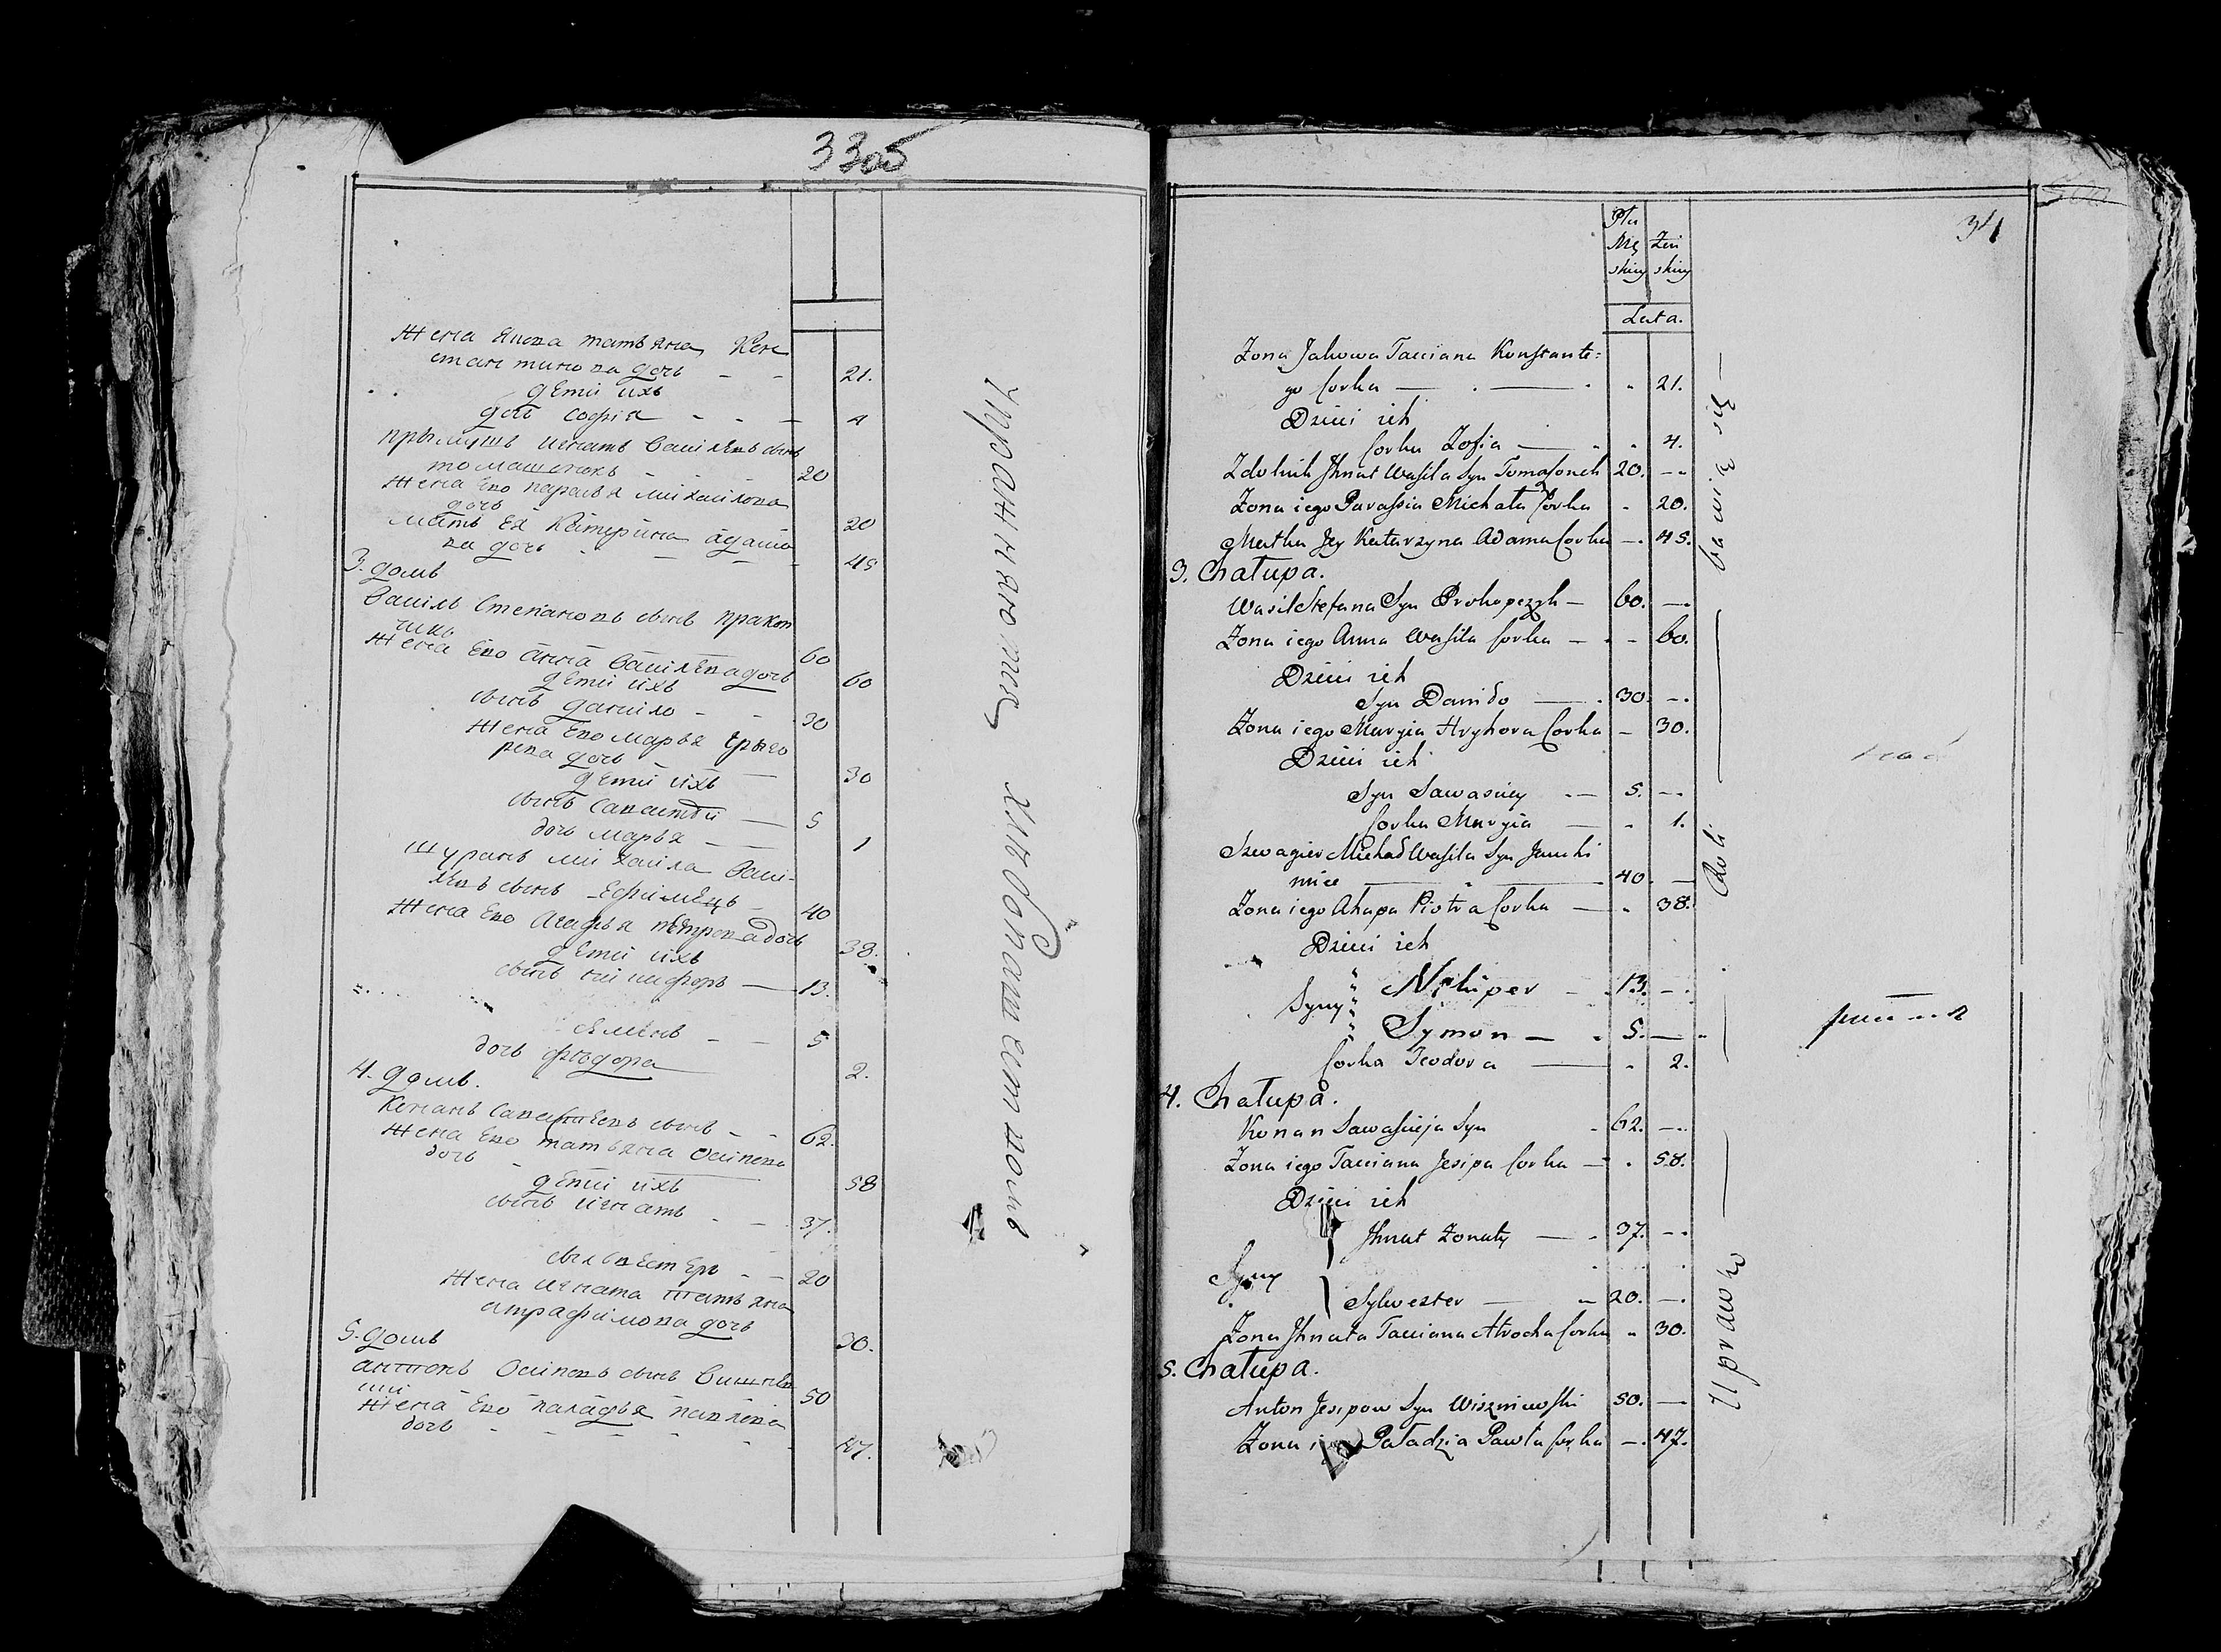 33об
Жена Якова татьяна Кон
стантинова дочь 21.
дети ихъ
дочь софия 4
томашенокъ 20
Жена Ево парасья михайлова
дочь 20
мать Ея Катерина адамо
ва дочь 45
3. домъ
Василь Степановъ сынъ пракоп
чикъ 60
Жена Ево анна Василева дочь 60
дети ихъ
сынъ данило 30
Жена Ево марья грыго
рева дочь 30
дети ихъ
сынъ Савастей 5
дочь марья 1
шуринъ михайла Васи-
левъ сынъ Ефимецъ 40
Жена Ево Агафья петрова дочь 38.
дети ихъ
сынъ никифоръ 13.
сямёнъ 5
дочь фёдора 2.
4. домъ.
Конанъ Савастеевъ сынъ 62.
Жена Ево татьяна Осипова
дочь 58
дети ихъ
сынъ игнатъ 37.
сылвестеръ 20
Жена игната татьяна
атрафимова дочь 30.
5. домъ
антонъ Осиповъ сынъ Вишнев
ский 50
Жена Ево паладья павлова
дочь 47.
Упражняютца хлебопашествомъ
34
Płu
Mę Żeń
skiey skiey
Lata.
Żona Jakowa Tacciana Konstante:
go Corka 21.
Dzieci ich
Corka Zofia 4.
Zdolnik Jhnat Wasila Syn Tomasonek 20.
Żona iego Parassia Michała Corka 20.
Matka Jey Katarzyna Adama Corka 45.
3. Chałupa.
Wasil Stefana Syn Prokopczyk 60.
Żona iego Anna Wasila Corka 60.
Dzieci ich
Syn Daniło 30.
Żona iego Maryia Hryhora Corka 30.
Dzieci ich
Syn Sawasciey 5.
Corka Maryia 1.
Szwagier Michał Wasila Syn Jauchi
miec 40.
Żona iego Ahapa Piotra Corka 38.
Dzieci ich
Syny Nikiper 13.
Symon 5.
Corka Teodora 2.
4. Chałupa.
Konan Sawasieja Syn 62.
Żona iego Tacciana Jesipa Corka 58.
Dzieci ich
Syny Jhnat Żonaty 37.
Sylwester 20.
Żona Jhnata Tacciana Atrocha Corka 30.
5. Chałupa.
Anton Jesipow Syn Wiszniewski 50.
Żona Paładzia Pawła Corka 47.
Uprawko Roli bawię się